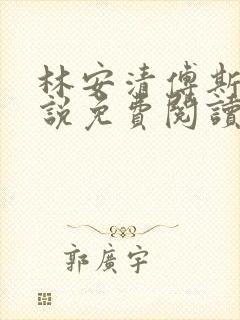 林安清傅斯
說免費閱讀
郭廣宇